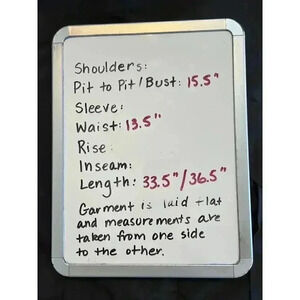 Shoulders:
Pit to Pit/Bust: 15.5"
Sleeve:
Waist: 13.5"
Rise:
Inseam:
Length: 33.5"/36.5"
Garment is laid flat
and measurements are
taken from one side
to the other.